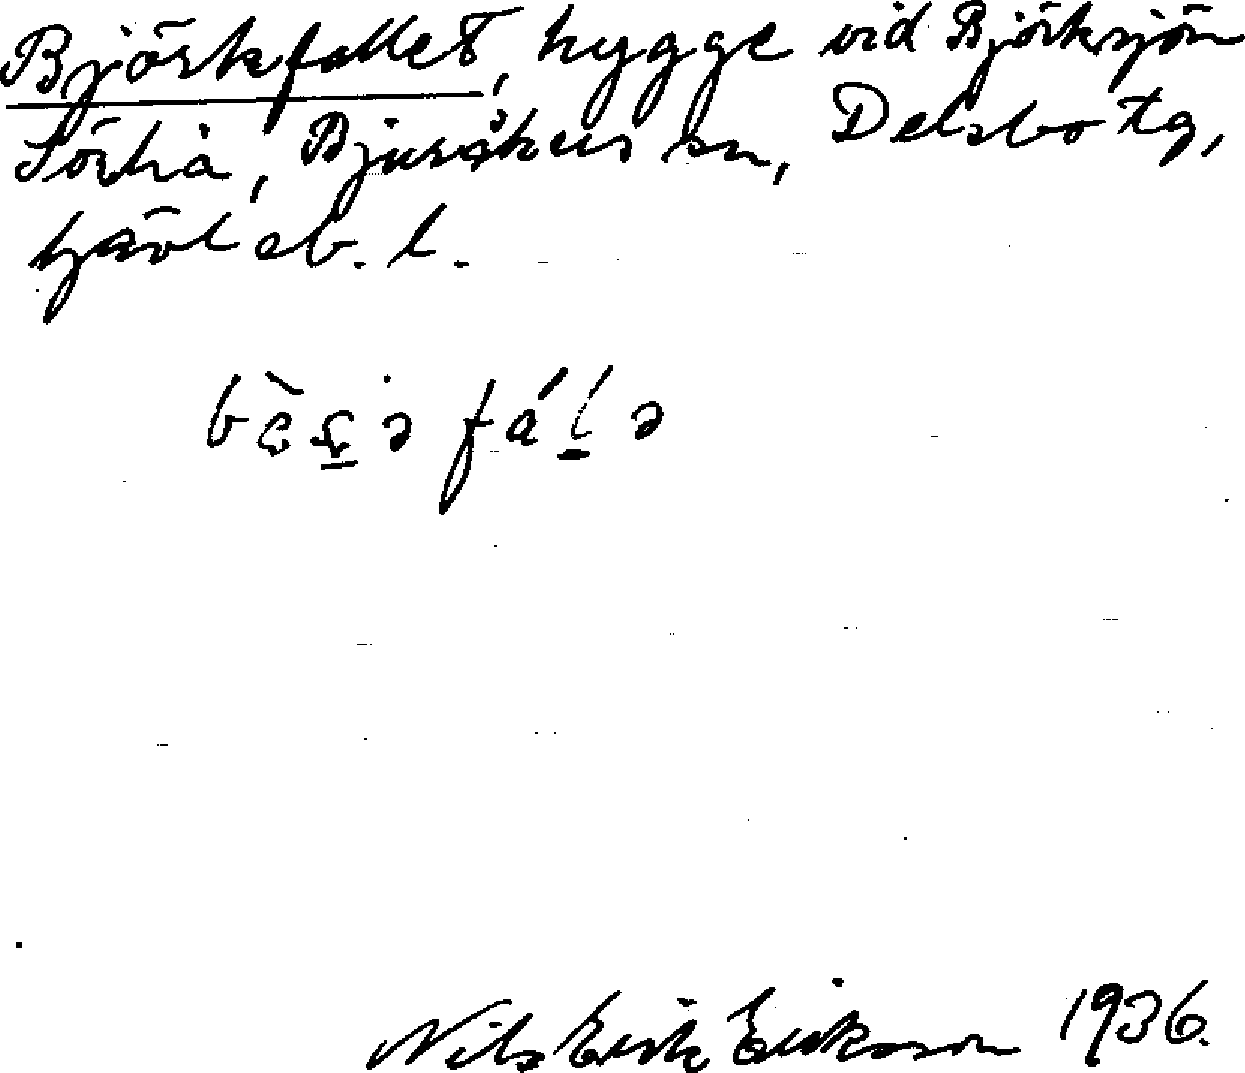 Björkfallet, hygge vid Björksjön
Sörhå, Bjuråkers sn, Delsbo tg,
Gävleb. l.
Nils Erik Eriksson 1936.